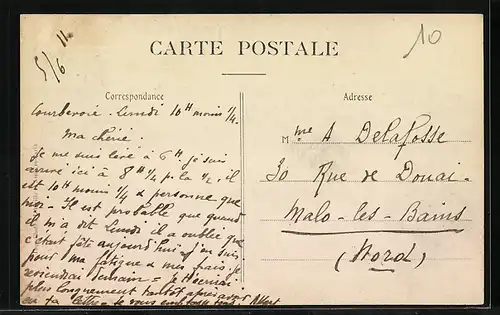 5/6 11
CARTE POSTALE
10
Correspondance
Adresse
Courbevoie. Lundi 10H moins 1/4.
Ma chérie.
Je me suis levé à 6H, je suis
arrivé ici à 8H 1/4 p. la 1/2, il
est 10H moins 1/4 & personne que
moi - Il est probable que quand
il m'a dit lundi il a oublié que
c'était fête aujourd'hui, j'en suis
pour ma fatigue & mes frais, je
reviendrai demain = Je t'écrirai
plus longuement tantôt après avoir
eu ta lettre = Je vous embrasse Albert
Mme A Delafosse
30 Rue de Douai -
Malo-les-Bains
(Nord)